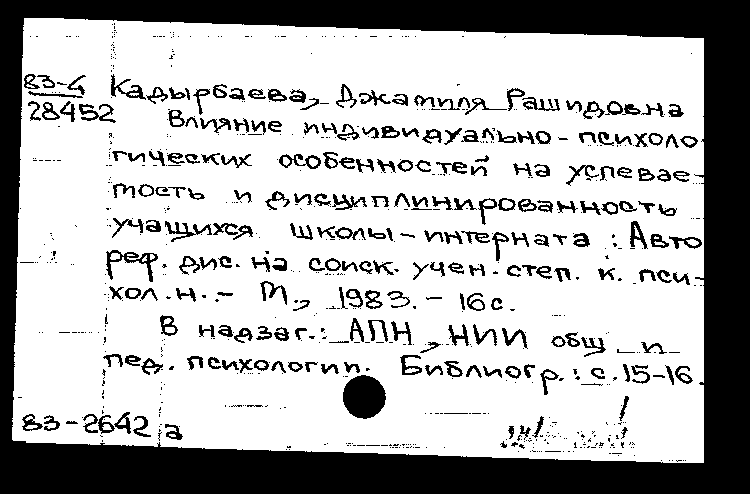 83-4 Кадырбаева, Джамиля Рашидовна
28452 Влияние индивидуально-психоло-
гических особенностей на успевае-
мость и дисциплинированность
учащихся школы-интерната : Авто
реф. дис. на соиск. учен. степ. к. пси-
хол. н. - М., 1983. - 16 с.
В надзаг.: АПН, НИИ общ. и
пед. психологии. Библиогр.: с. 15-16.
83-2642 а